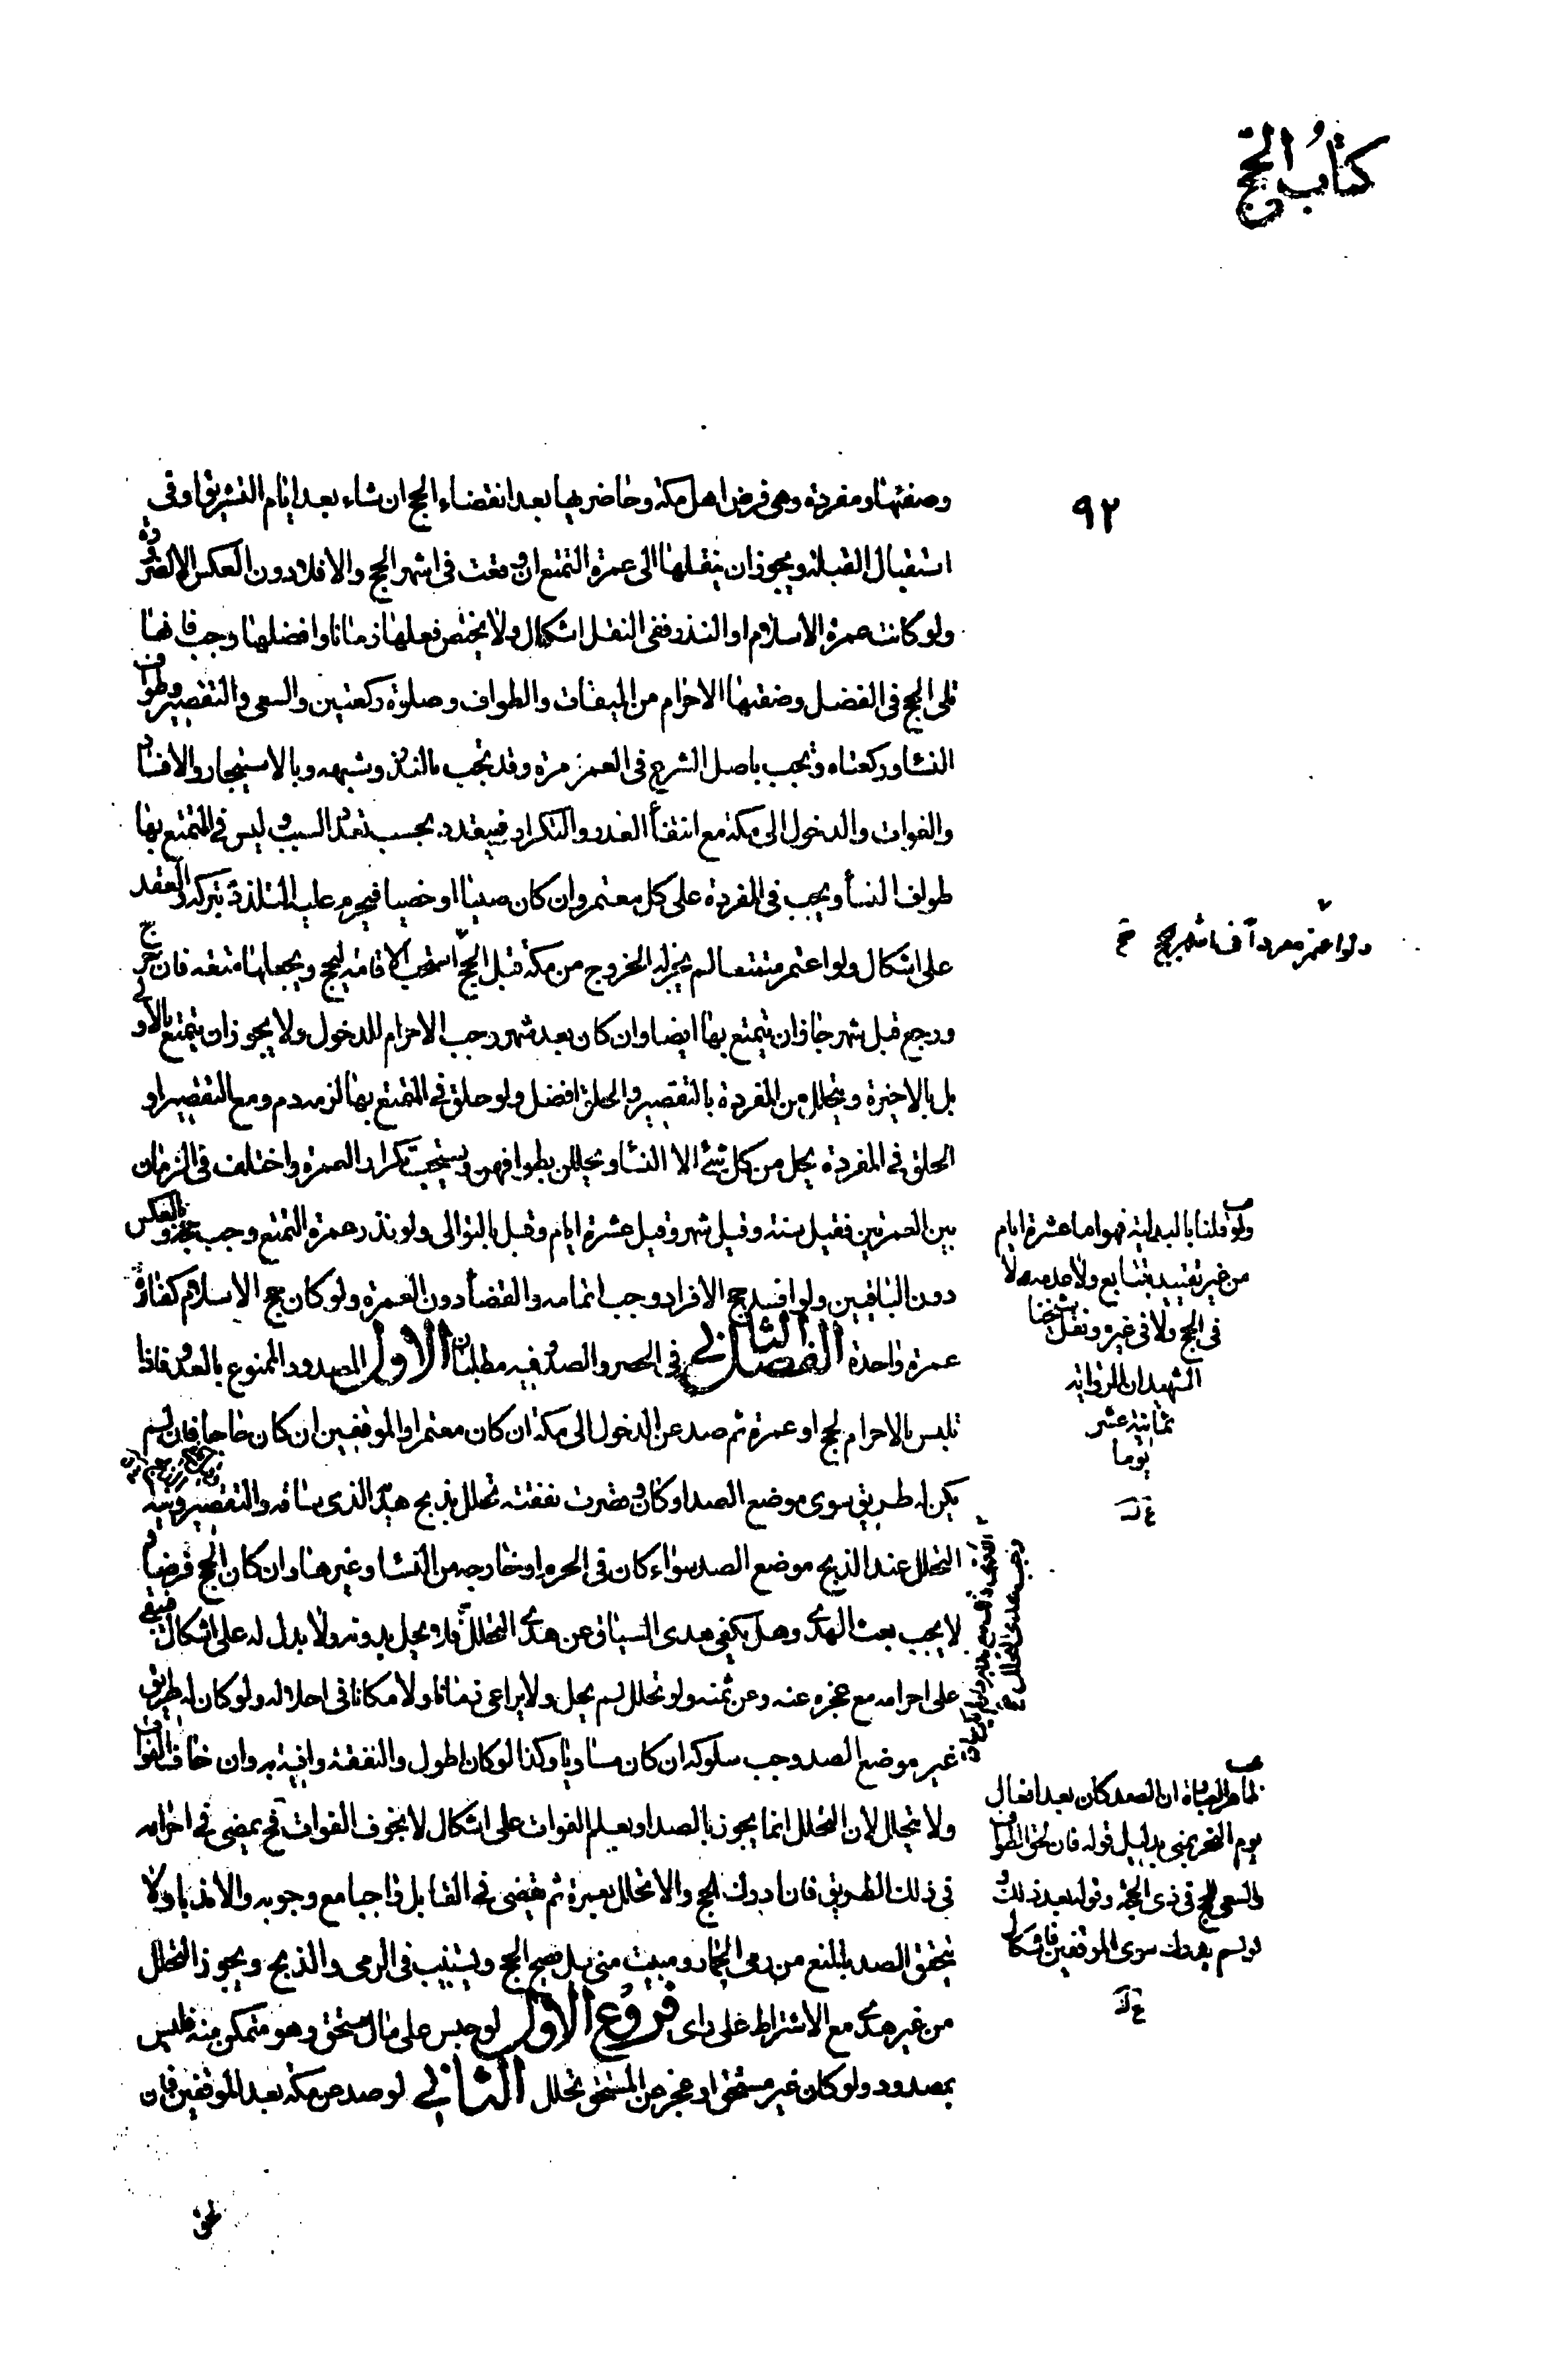 كتاب الحج
٩٢
وصفتها ومفردة وهي فرض اهل مكة وحاضريها بعد انقضاء الحج ان شاء بعد ايام التشريق او في
استقبال القبلة ويجوز ان ينقلها الى عمرة التمتع ان وقعت في اشهر الحج والا فلا دون العكس الا لضرورة
ولو كانت عمرة الاسلام او النذر ففي النقل اشكال ولا يختص فعلها زمانا وافضلها رجب فانها
تلى الحج في الفضل وصفتها الاحرام من الميقات والطواف وصلوة ركعتين والسعي والتقصير وطواف
النساء وركعتاه وتجب باصل الشرع في العمر مرة وقد تجب بالنذر وشبهه وبالاستيجار والافساد
والفوات والدخول الى مكة مع انتفاء العذر والتكرار فيتعدد بحسب تعدد السبب وليس في المتمتع بها
طواف النساء ويجب في المفردة على كل معتمر وان كان صبيا او خصيا فيحرم عليه التلذذ بتركه والعقد
على اشكال ولو اعتمر متمتعا لم يجز له الخروج من مكة قبل الحج استحب الاقامة ليحج ويجعلها متعة فان خرج
ورجع قبل شهر جاز ان يتمتع بها ايضا وان كان بعد شهر وجب الاحرام للدخول ولا يجوز ان يتمتع بالاولى
بل بالاخيرة ويتحلل من المفردة بالتقصير والحلق افضل ولو حلق في المتمتع بها لزمه دم ومع التقصير او
الحلق في المفردة يحل من كل شئ الا النساء ويحللن بطوافهن ويستحب تكرار العمرة واختلف في الزمان
بين العمرتين فقيل سنة وقيل شهر وقيل عشرة ايام وقيل بالتوالى ولو نذر عمرة التمتع وجب حج وبالعكس
دون الباقيين ولو افسد حج الافراد وجب اتمامه والقضاء دون العمرة ولو كان حج الاسلام كفاه
عمرة واحدة الفصل الثاني في الحصر والصد وفيه مطلبان الاول المصدود الممنوع بالعدو فاذا
تلبس بالاحرام لحج او عمرة ثم صد عن الدخول الى مكة ان كان معتمرا او الموقفين ان كان حاجا فان لم
يكن له طريق سوى موضع الصد او كان وقصرت نفقته تحلل بذبح هديه الذي ساقه والتقصير ونية
التحلل عند الذبح موضع الصد سواء كان في الحرم او خارجه من النساء وغيرها وان كان الحج فرضا و
لا يجب بعث الهدي وهل يكفي هدى السياق عن هدي التحلل فلا يحل بدونه ولا بدل له على اشكال فيبقى
على احرامه مع عجزه عنه وعن ثمنه ولو تحلل لم يحل ولا يراعى زمانا ولا مكانا في احلاله ولو كان له طريق
غير موضع الصد وجب سلوكه ان كان مساويا وكذا لو كان اطول والنفقة وافية به وان خاف الفوات
ولا يتحلل لان التحلل انما يجوز بالصد او بعلم الفوات على اشكال لا بخوف الفوات فح يمضي في احرامه
في ذلك الطريق فان ادرك الحج والا تحلل بعمرة ثم يقضي في القابل واجبا مع وجوبه والا ندبا ولا
يتحقق الصد بالمنع من رمى الجمار ومبيت منى بل يصح الحج ويستنيب في الرمى والذبح ويجوز التحلل
من غير هدي مع الاشتراط على راى فروع الاول لو حبس على مال مستحق وهو متمكن منه فليس
بمصدود ولو كان غير مستحق او عجز عن المستحق تحلل الثاني لو صد عن مكة بعد الموقفين فان
ولو اعتمر مفردا في اشهر الحج صح
ولو قلنا بالبدلية فهو اما عشرة ايام
من غير تقييد بتتابع ولا عدمه لا
في الحج ولا في غيره ونقل شيخنا
الشهيد ان الرواية
ثمانية عشر
يوما
ظاهر العبارة ان الصد كان بعد افعال
يوم النحر بمنى بدليل قوله فان لحق الطواف
والسعي للحج في ذي الحجة وقوله بعد ذلك و
لو لم يدرك سوى الموقفين فاشكال
لحق